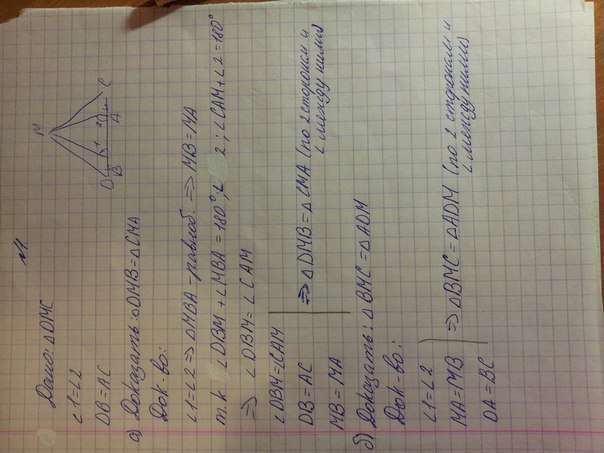 №1
Дано: △DMC
M
D B 1 2 A C
∠1=∠2
DB=AC
а) Доказать: △DMB=△CMA
Док-во:
∠1=∠2 ⇒ △MBA - равноб. ⇒ MB=MA
т.к. ∠DBM+∠MBA=180°, ∠ 2; ∠CAM+∠2=180°
⇒ ∠DBM=∠CAM
∠DBM=∠CAM
DB=AC ⇒ △DMB=△CMA (по 2 сторонам и
MB=MA ∠ между ними)
б) Доказать: △BMC=△ADM
Док-во:
∠1=∠2
MA=MB ⇒ △BMC=△ADM (по 2 сторонам и
DA=BC ∠ между ними)